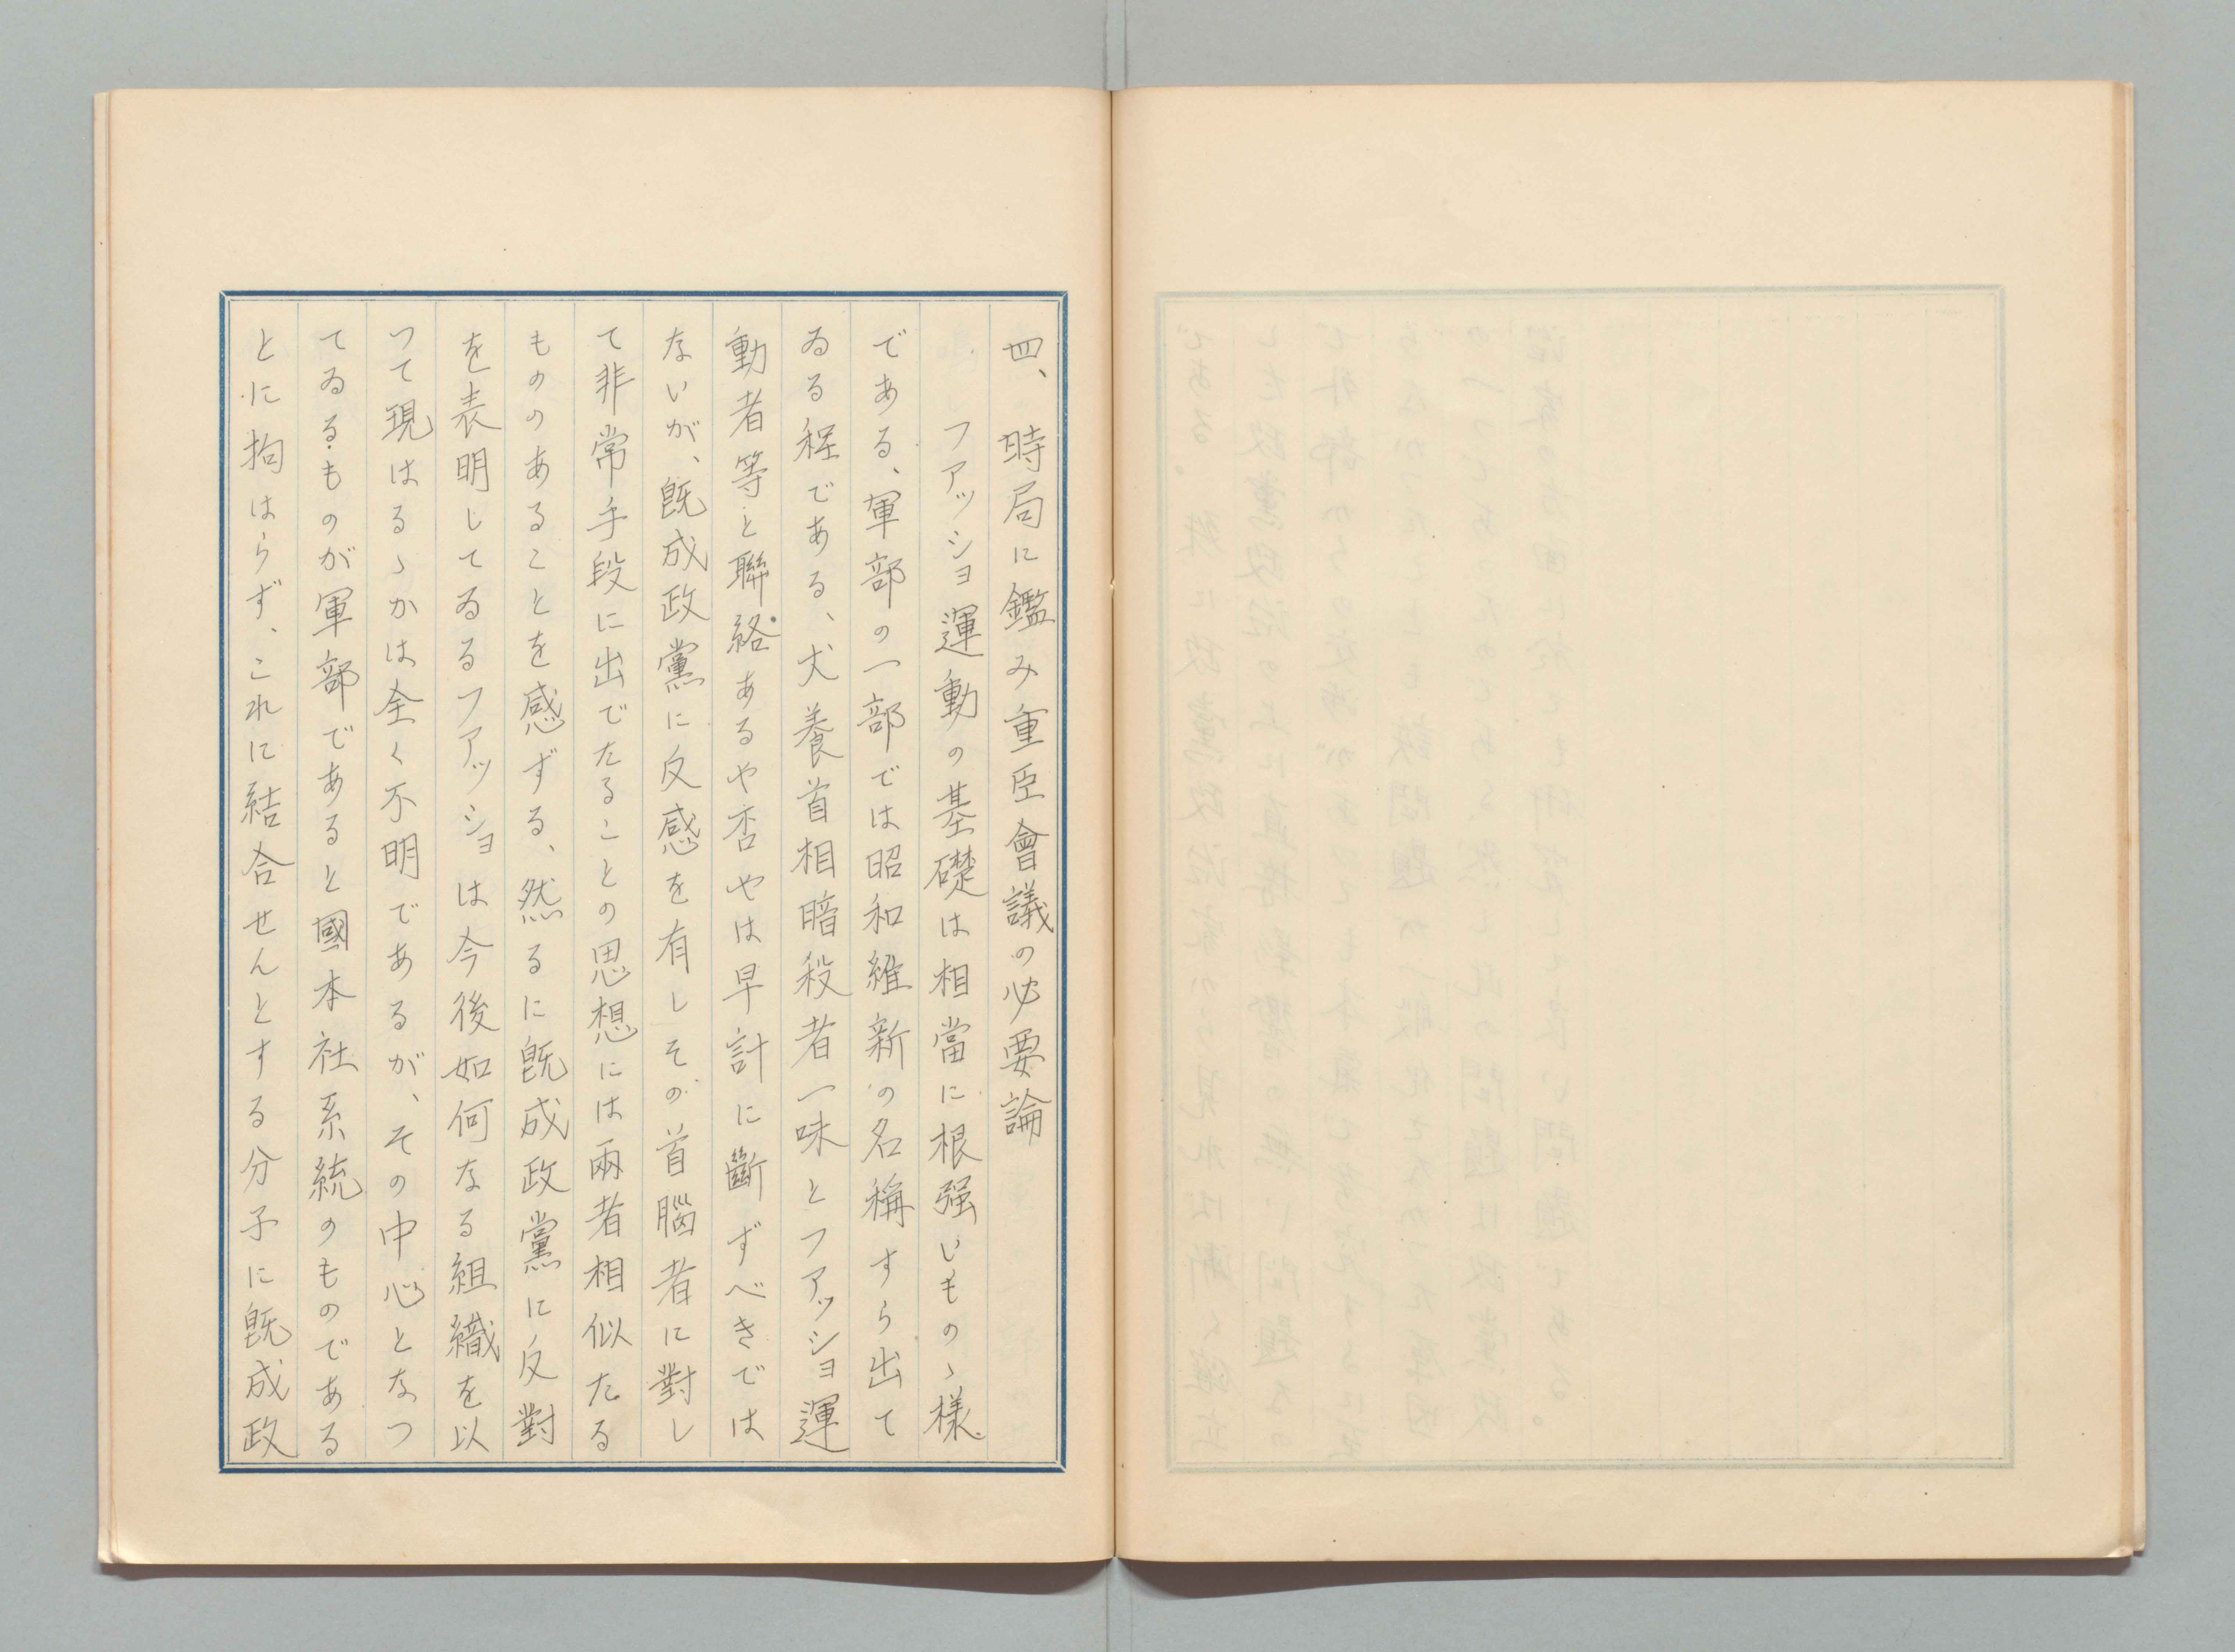 四、時局に鑑み重臣會議の必要論
ファッショ運動の基礎は相當に根强いものゝ樣
である、軍部の一部では昭和維新の名稱すら出て
ゐる程である、犬養首相暗殺者一味とファッショ運
動者等と聯絡あるや否やは早計に斷ずべきでは
ないが、既成政黨に反感を有しその首腦者に對し
て非常手段に出でたることの思想には兩者相似たる
もののあることを感ずる、然るに既成政黨に反對
を表明してゐるファッショは今後如何なる組織を以
つて現はるゝかは全く不明であるが、その中心となつ
てゐるものが軍部であると國本社系統のものである
とに拘はらず、これに結合せんとする分子に既成政